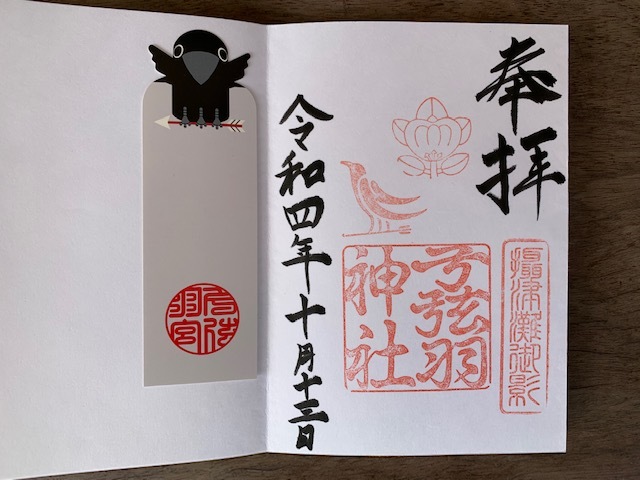 奉拝
攝津灘御影
弓弦羽
神社
令和四年十月十三日
弓弦
羽宮